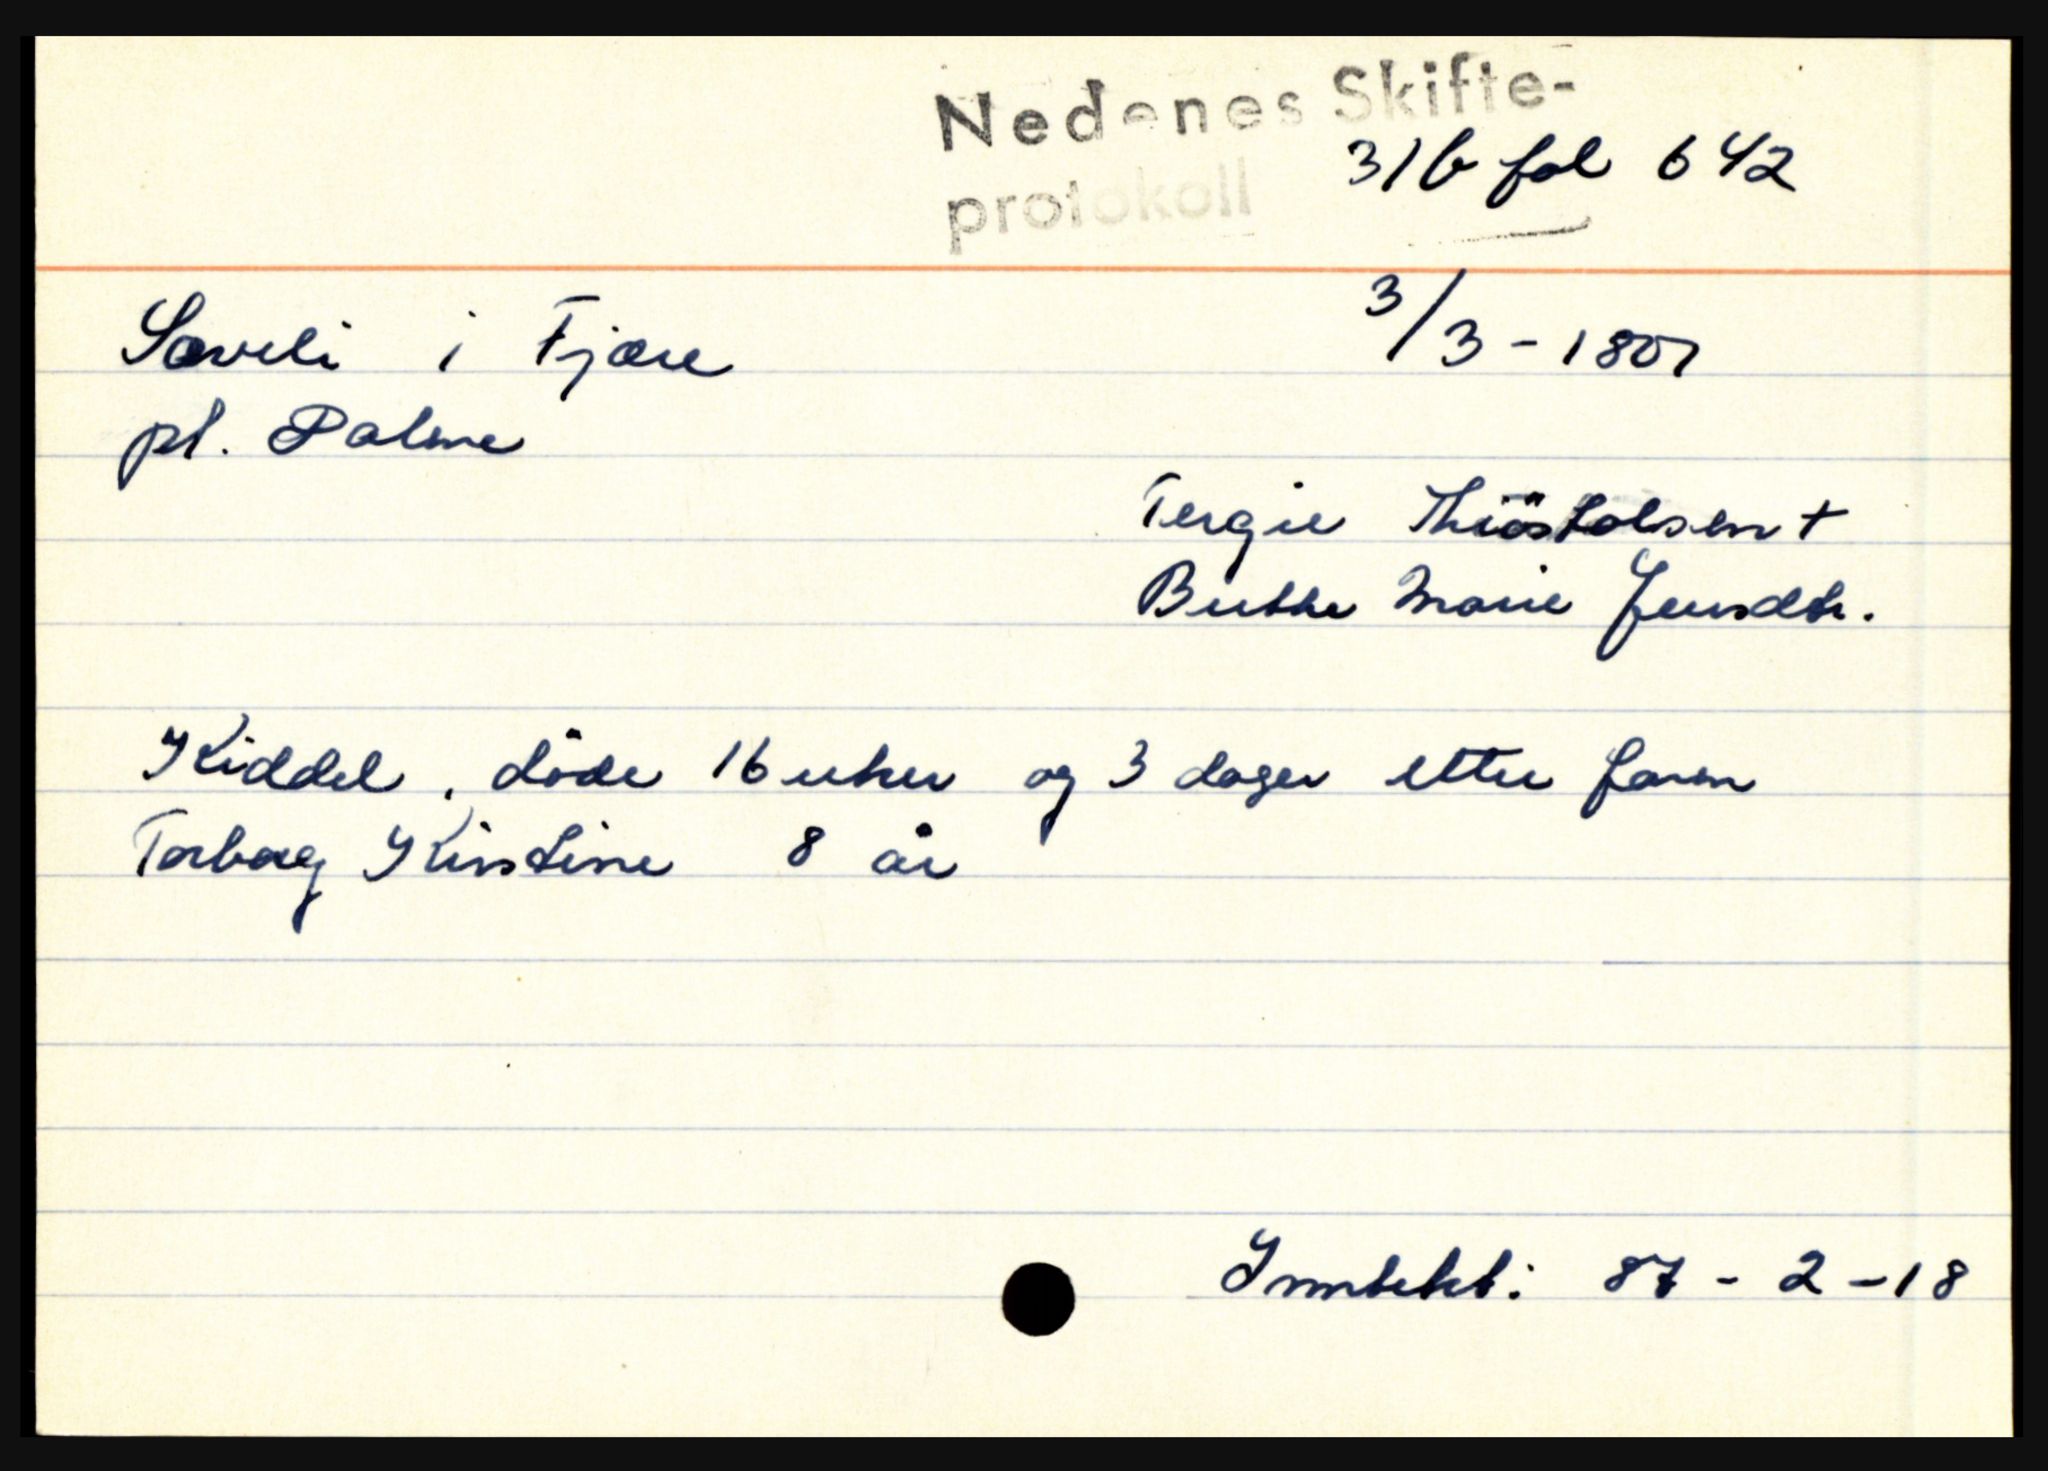 Nedenes Skifte-
protokoll 31b fol 642
Sæveli i Fjære 3/3 - 1801
pl. Palme
Tergie Thiöstolsen +
Birthe Marie Jensdtr.
Kiddel, døde 16 uker og 3 dager etter faren
Torborg Kirstine 8 år
Inntekt: 87 - 2 - 18